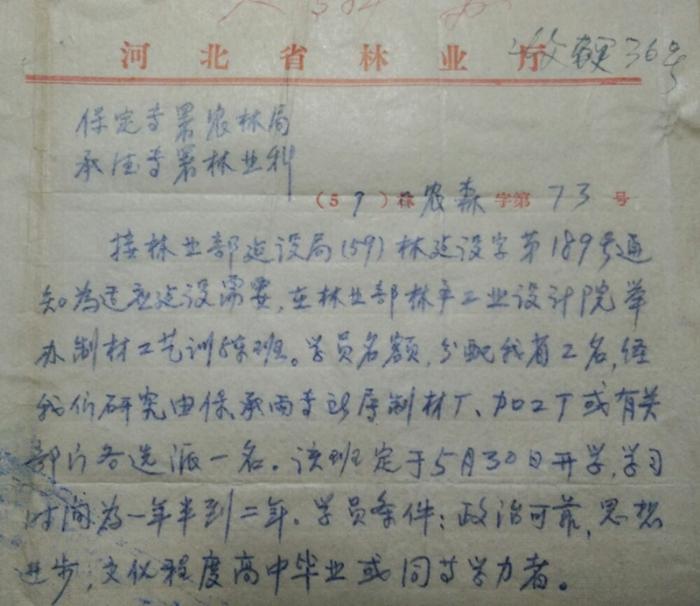 河北省林业厅
收 36号
保定专署农林局
承德专署林业科
(59)林农森字第73号
接林业部建设局(59)林建设字第189号通
知为适应建设需要,在林业部林产工业设计院举
办制材工艺训练班。学员名额,分配我省2名,经
我们研究由保、承两专区原制材厂、加工厂或有关
部门各选派一名。该班定于5月30日开学,学习
时间为一年半到二年。学员条件:政治可靠,思想
进步,文化程度高中毕业或同等学力者。